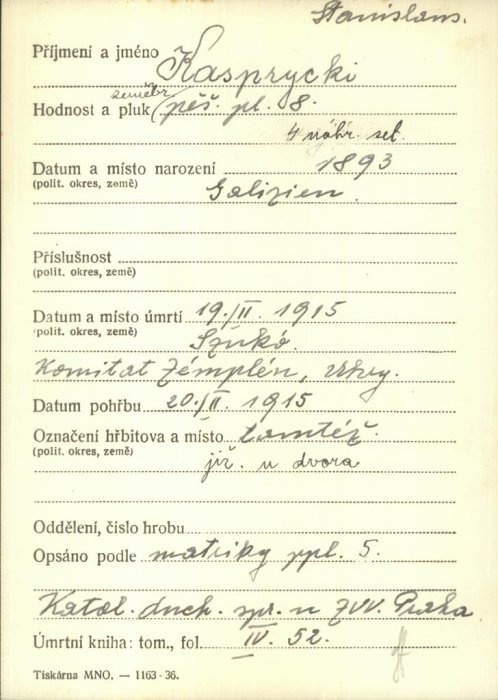 Stanislaus.
Příjmení a jméno Kasprycki
zeměbr.
Hodnost a pluk pěš. pl. 8.
4 náhr. set.
Datum a místo narození 1893
(polit. okres, země) Galizien.
Příslušnost
(polit. okres, země)
Datum a místo úmrtí 19./II. 1915
(polit. okres, země) Szükó.
Komitat Zémplén, Uhry.
Datum pohřbu 20./II. 1915
Označení hřbitova a místo tamtéž.
(polit. okres, země) již. u dvora
Oddělení, číslo hrobu
Opsáno podle matriky ppl. 5.
Katol. duch. spr. u ZVV. Praha
Úmrtní kniha: tom., fol. IV. 52.
Tiskárna MNO. — 1163-36.